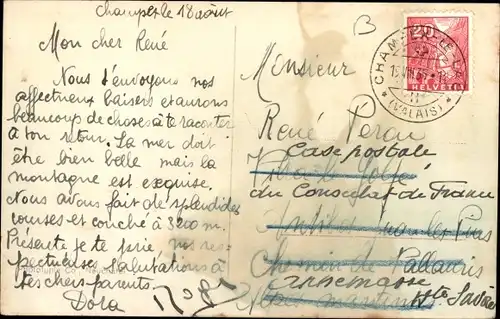 Champex le 18 août
Mon cher René
Nous t'envoyons nos
affectueux baisers et aurons
beaucoup de choses à te raconter
à ton retour. La mer doit
être bien belle mais la
montagne est exquise.
Nous avons fait de splendides
courses et couché à 3200 m.
Présente je te prie nos res-
pectueuses salutations à
tes chers parents.
Dora
B
Monsieur
René
Case postale
du Consulat de France
Antibes Juan les Pins
Chemin de Vallauris
Annemasse
Hte Savoie
20
HELVETIA
CHAMPEX
(VALAIS)